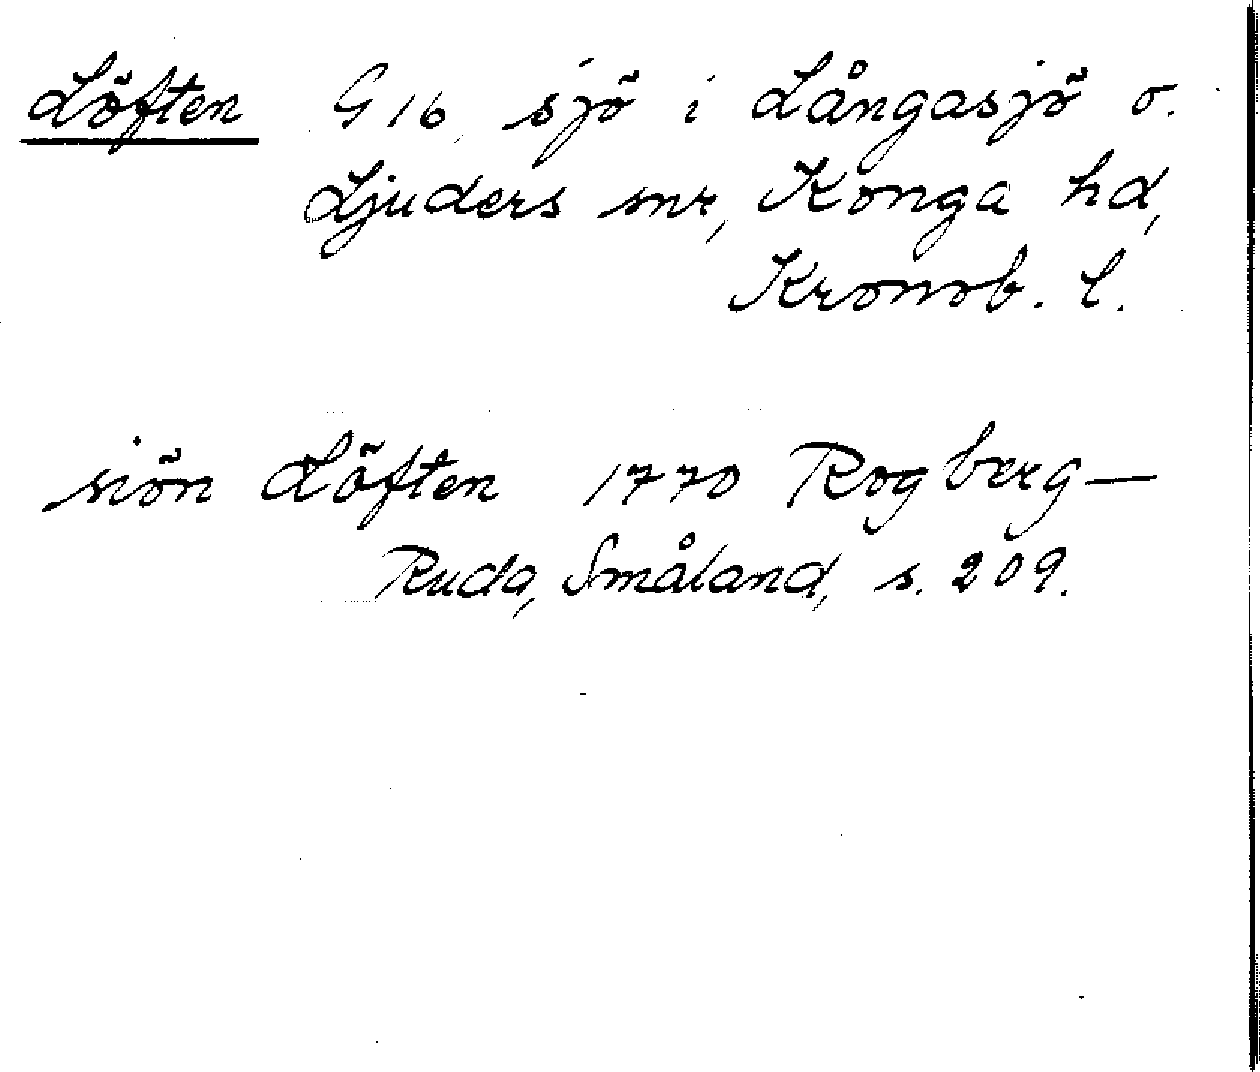 Löften G 16, sjö i Långasjö o.
Ljuders snr, Konga hd,
Kronob. l.
siön Löften 1770 Rogberg—
Ruda, Småland, s. 209.